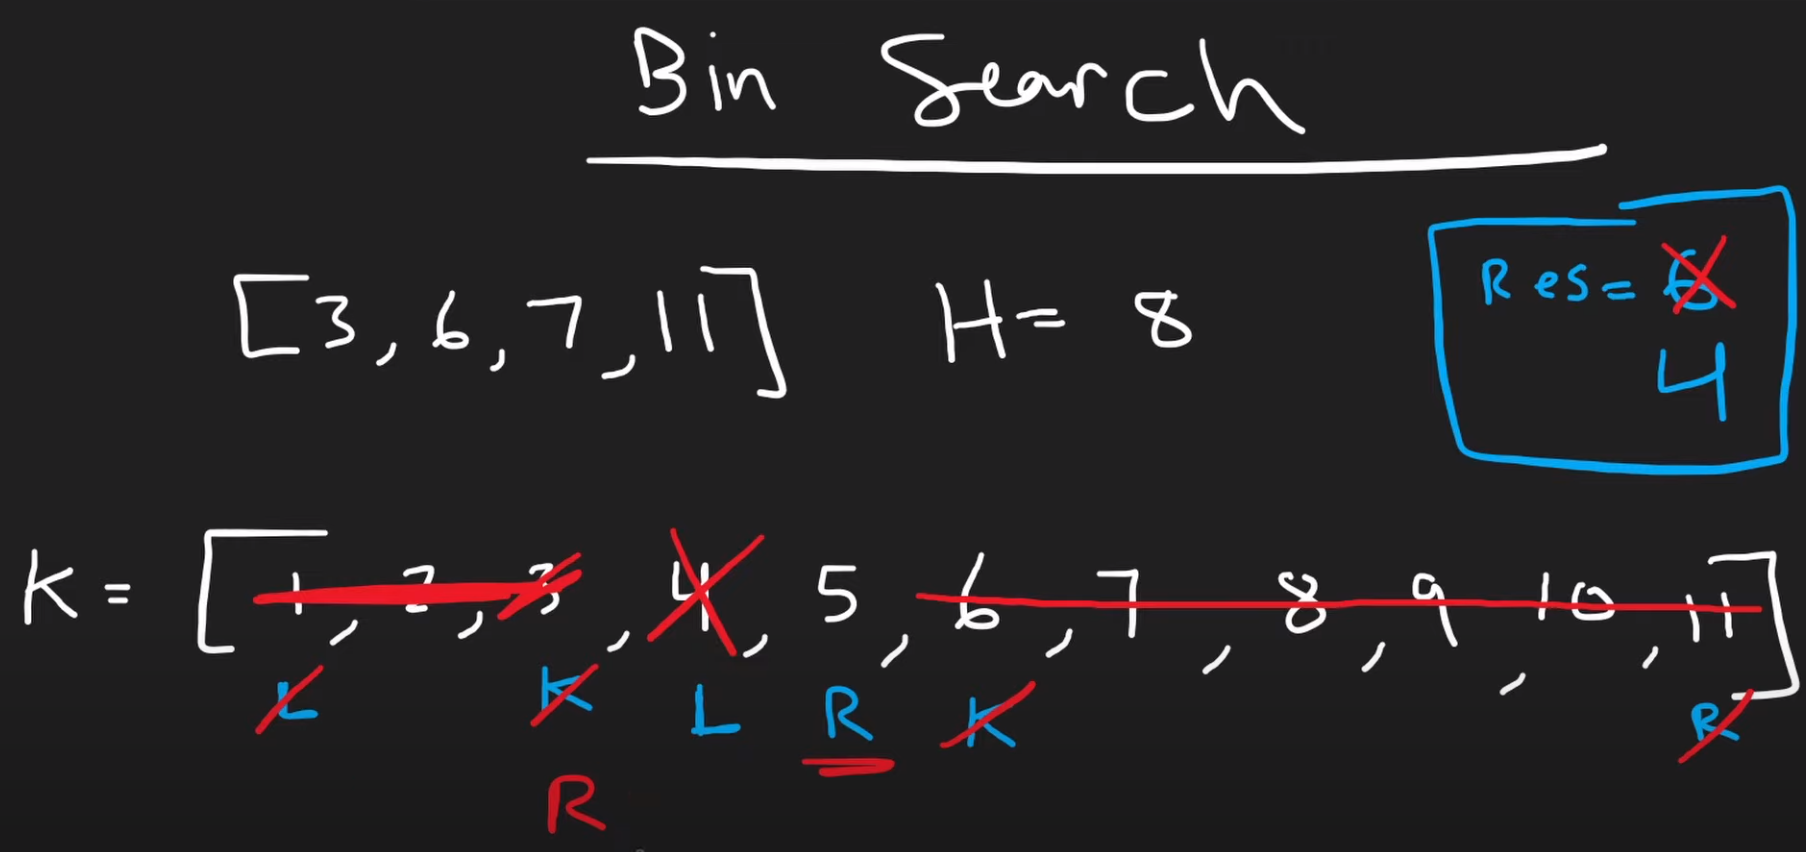 Bin Search
[3, 6, 7, 11] H= 8
Res= 6
4
K = [1, 2, 3, 4, 5, 6, 7, 8, 9, 10, 11]
L K L R K R
R